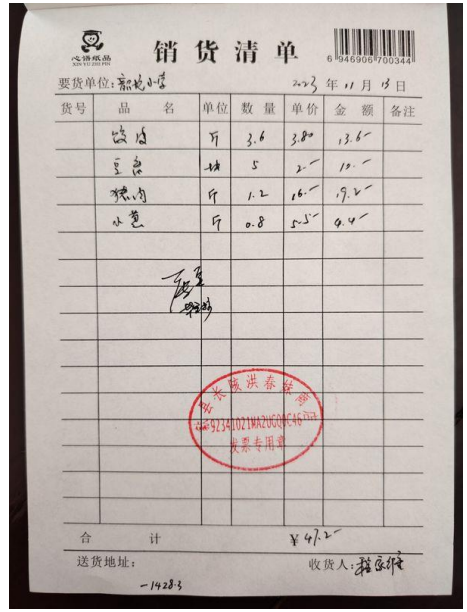 心语纸品
XIN YU ZHI PIN
销货清单
6 946906 700344
要货单位: 小学 2023 年 11 月 13 日
货号 品 名 单位 数 量 单价 金 额 备注
饺皮 斤 3.6 3.80 13.6-
豆腐 块 5 2.- 10.-
猪肉 斤 1.2 16.- 19.2-
小葱 斤 0.8 5.5- 4.4-
县长陔洪春妹
发票专用章
合 计 ¥47.2-
送货地址: 收货人:
-1428.3